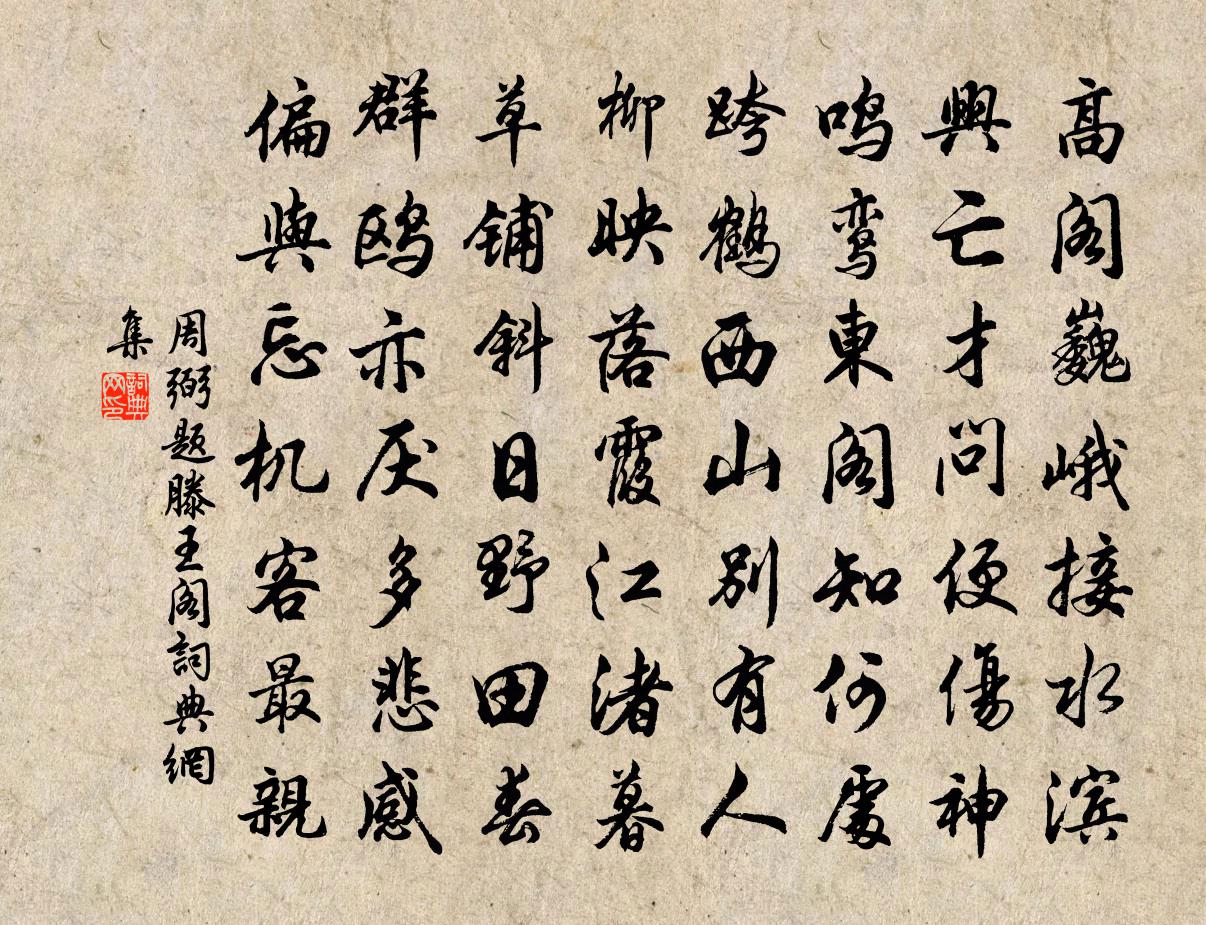 高阁巍峨接水滨
興亡才问便傷神
鸣鸾東阁知何處
跨鶴西山别有人
柳映落霞江渚暮
草铺斜日野田春
群鸥亦厌多悲感
偏與忘机客最親
周弼题滕王阁詞典網
集
詞典网印